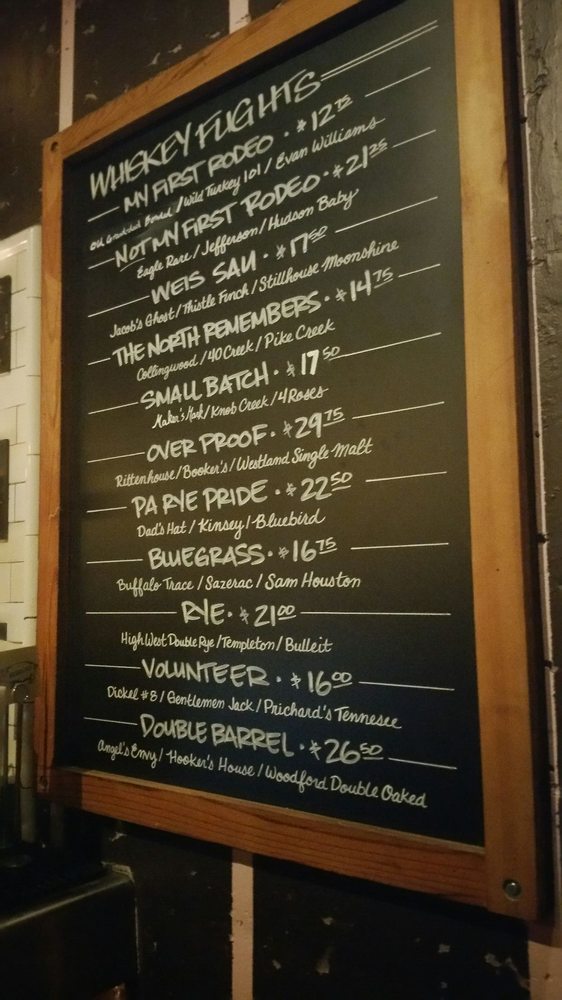 WHISKEY FLIGHTS
MY FIRST RODEO • $12.75
Old Grand-dad Bonded / Wild Turkey 101 / Evan Williams
NOT MY FIRST RODEO • $21.25
Eagle Rare / Jefferson / Hudson Baby
WEIS SAU • $17.50
Jacob's Ghost / Thistle Finch / Stillhouse Moonshine
THE NORTH REMEMBERS • $14.75
Collingwood / 40 Creek / Pike Creek
SMALL BATCH • $17.50
Maker's Mark / Knob Creek / 4 Roses
OVER PROOF • $29.75
Rittenhouse / Booker's / Westland Single Malt
PA RYE PRIDE • $22.50
Dad's Hat / Kinsey / Bluebird
BLUEGRASS • $16.75
Buffalo Trace / Sazerac / Sam Houston
RYE • $21.00
High West Double Rye / Templeton / Bulleit
VOLUNTEER • $16.00
Dickel #8 / Gentlemen Jack / Prichard's Tennesee
DOUBLE BARREL • $26.50
Angel's Envy / Hooker's House / Woodford Double Oaked